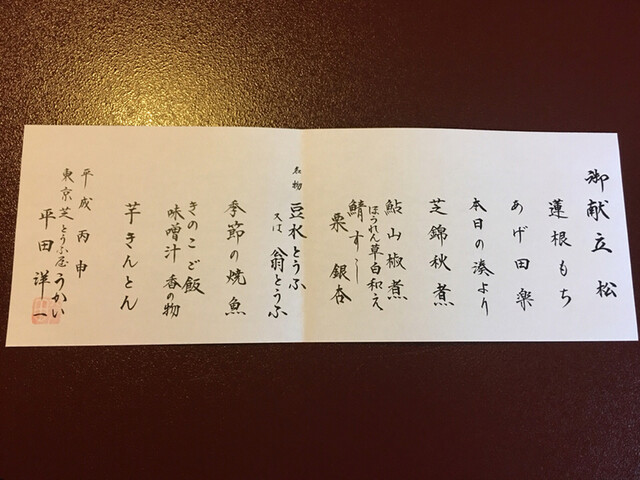 御献立 松
蓮根もち
あげ田楽
本日の湊より
芝錦秋煮
鮎山椒煮
ほうれん草白和え
鯖すし
栗 銀杏
名物 豆水とうふ
又は 翁とうふ
季節の焼魚
きのこご飯
味噌汁 香の物
芋きんとん
平成 丙申
東京芝とうふ屋うかい
平田 洋一